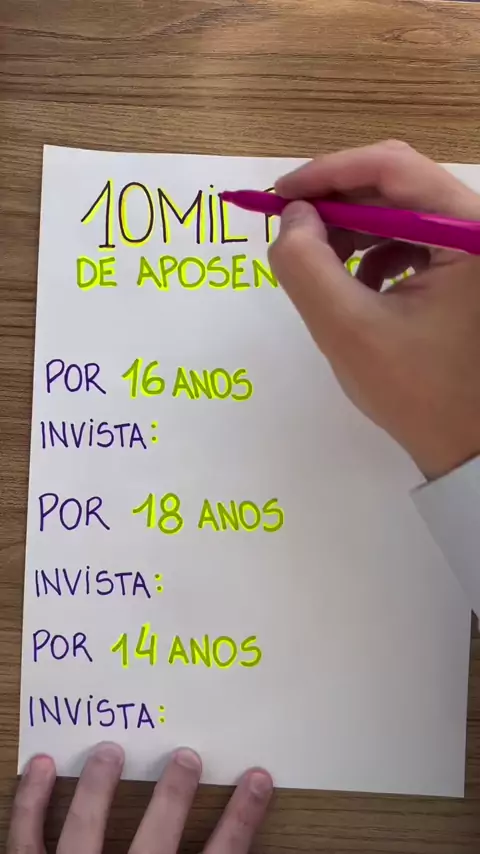 10MIL
DE APOSEN
POR 16 ANOS
INVISTA:
POR 18 ANOS
INVISTA:
POR 14 ANOS
INVISTA: